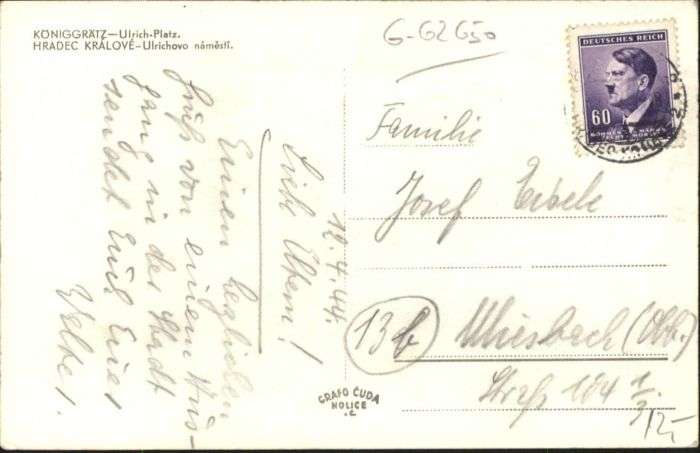 KÖNIGGRÄTZ—Ulrich-Platz.
HRADEC KRÁLOVÉ—Ulrichovo náměstí.
G-62650
DEUTSCHES REICH
60
BÖHMEN u. MÄHREN
12.4.44.
Liebe Eltern!
Einen herzlichen
Gruß von einem Aus-
gang in der Stadt
sendet Euch Euer
Familie
Josef Eisele
13b Miesbach (Obb.)
104 1/3
12,-
GRAFO ČUDA
HOLICE
i.č.